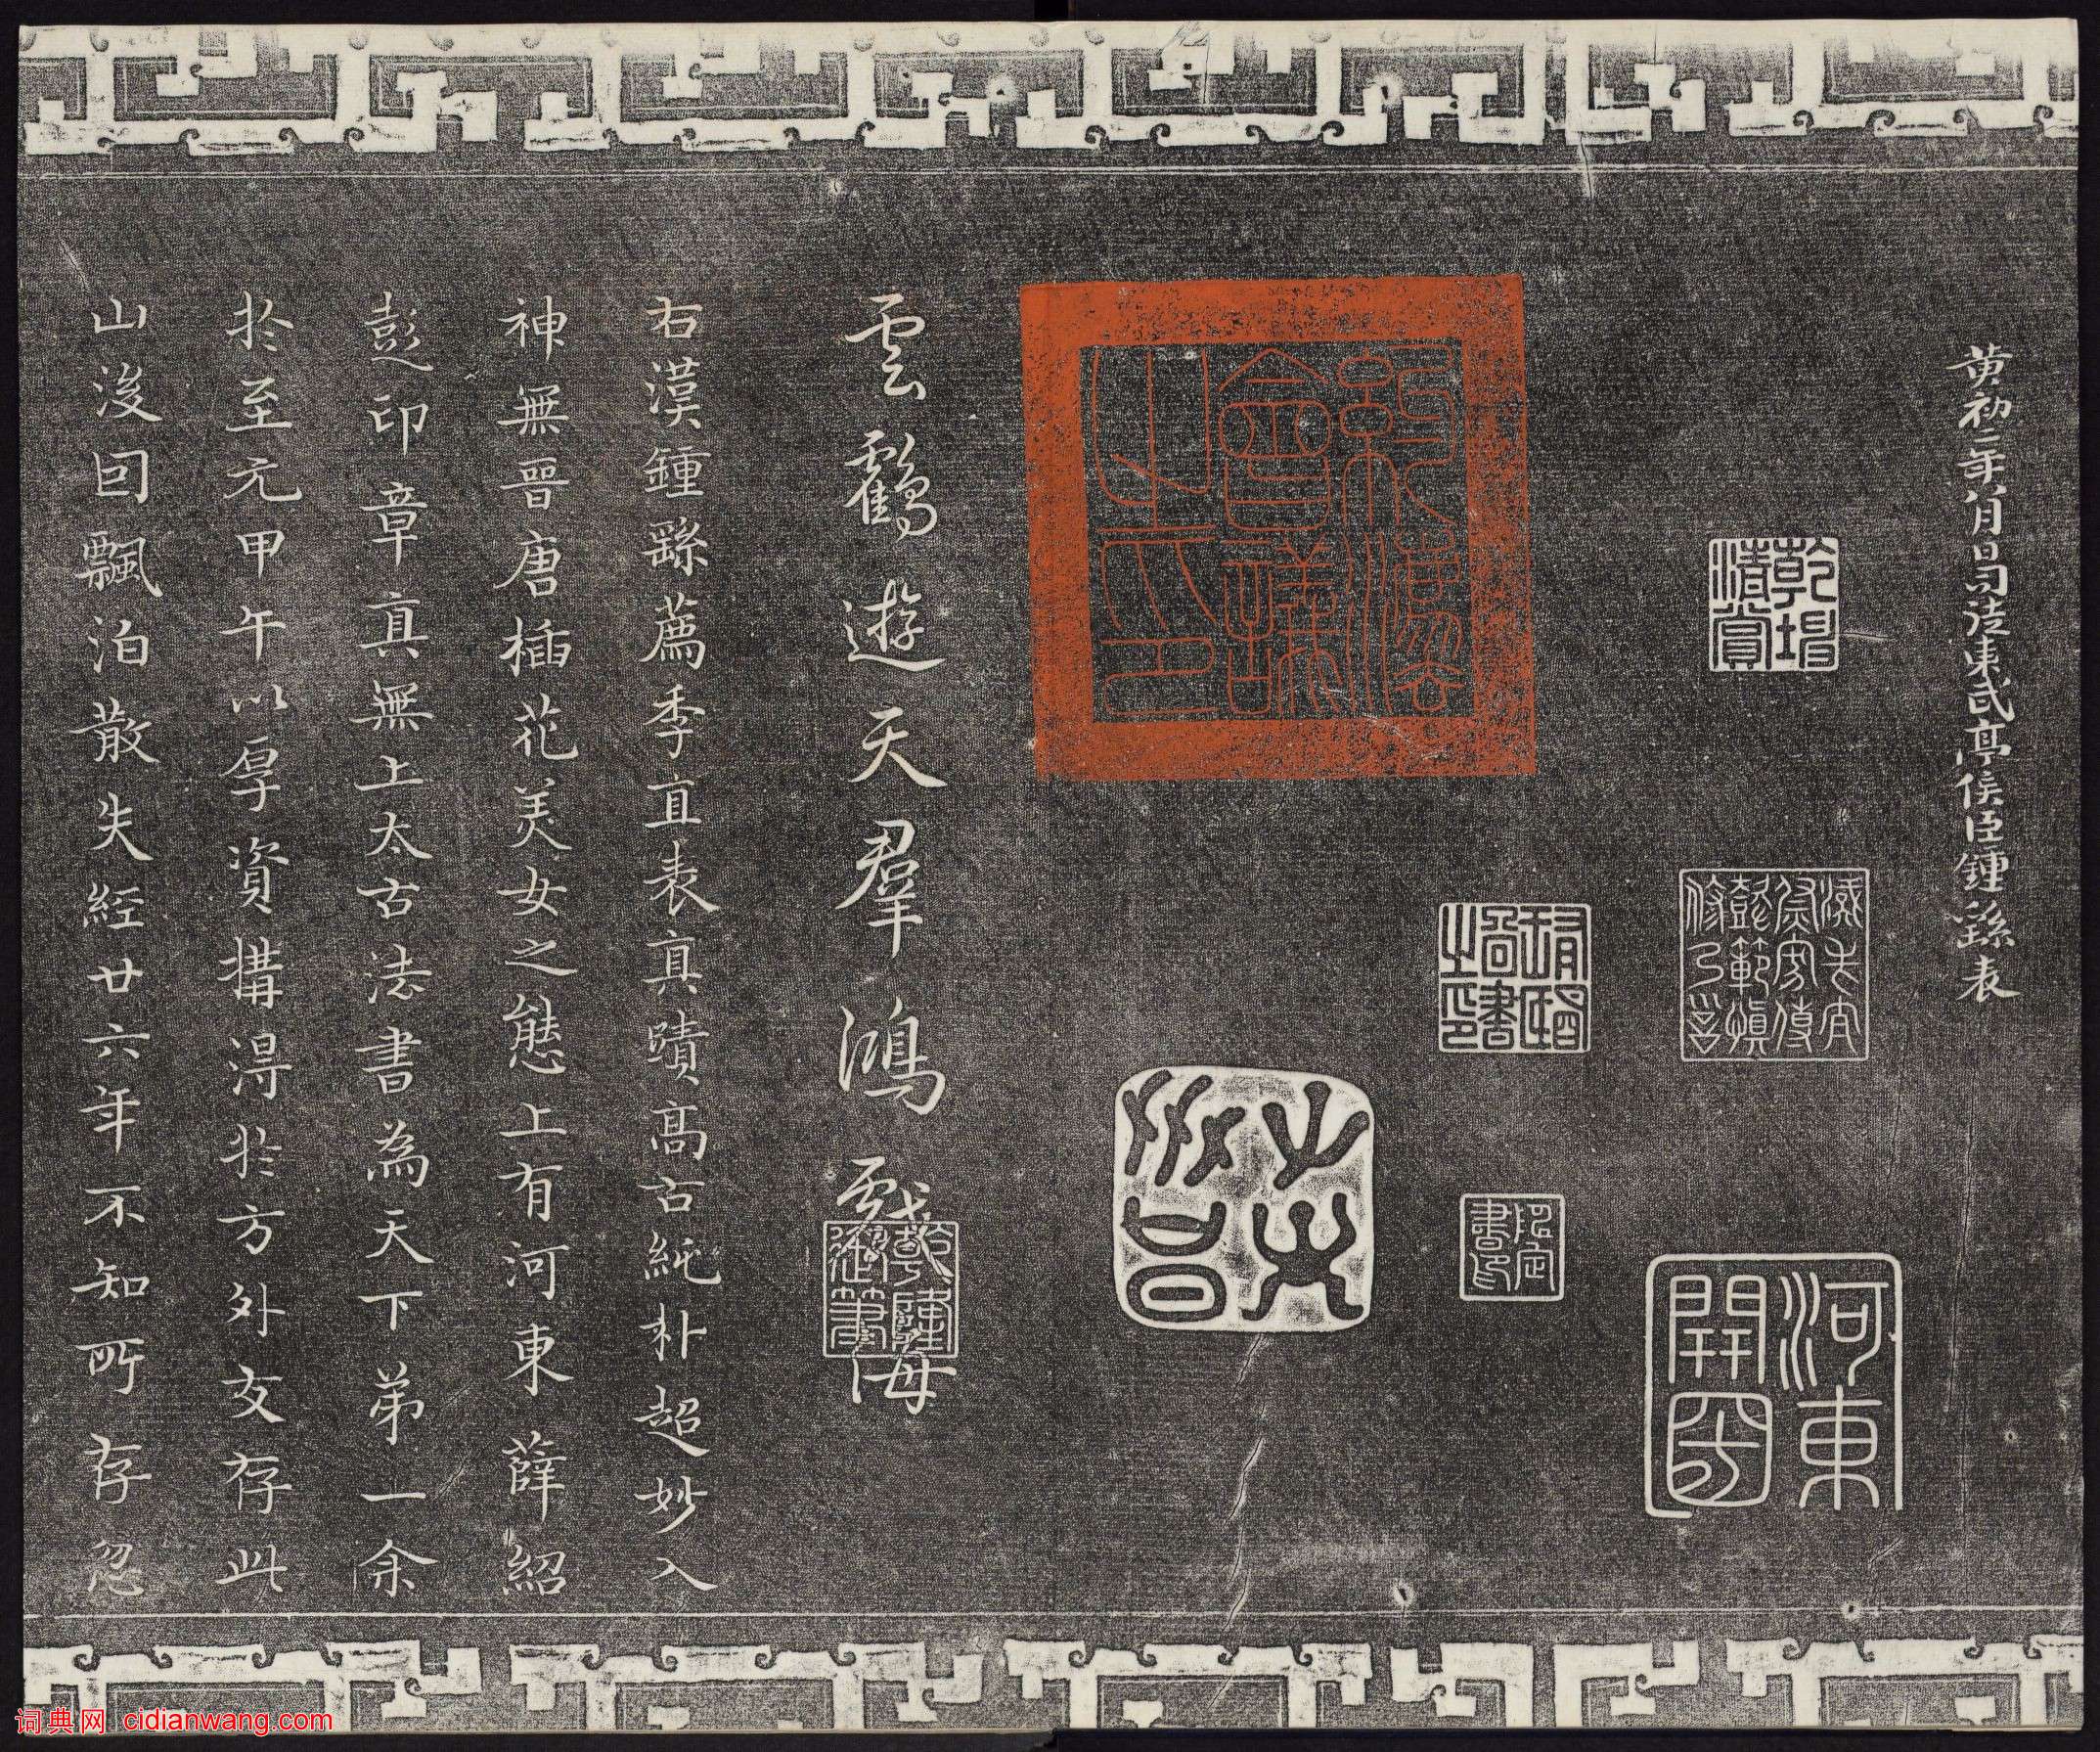 黄初二年八月日司徒東武亭侯臣鍾繇表
乾坤清賞
河東
雲鶴遊天羣鴻戲海
右漢鍾繇薦季直表真蹟高古純朴超妙入
神無晋唐插花美女之態上有河東薛紹
彭印章真無上太古法書為天下弟一余
於至元甲午以厚資搆得於方外友存此
山後回飄泊散失經廿六年不知所存忽
词典网 cidianwang.com